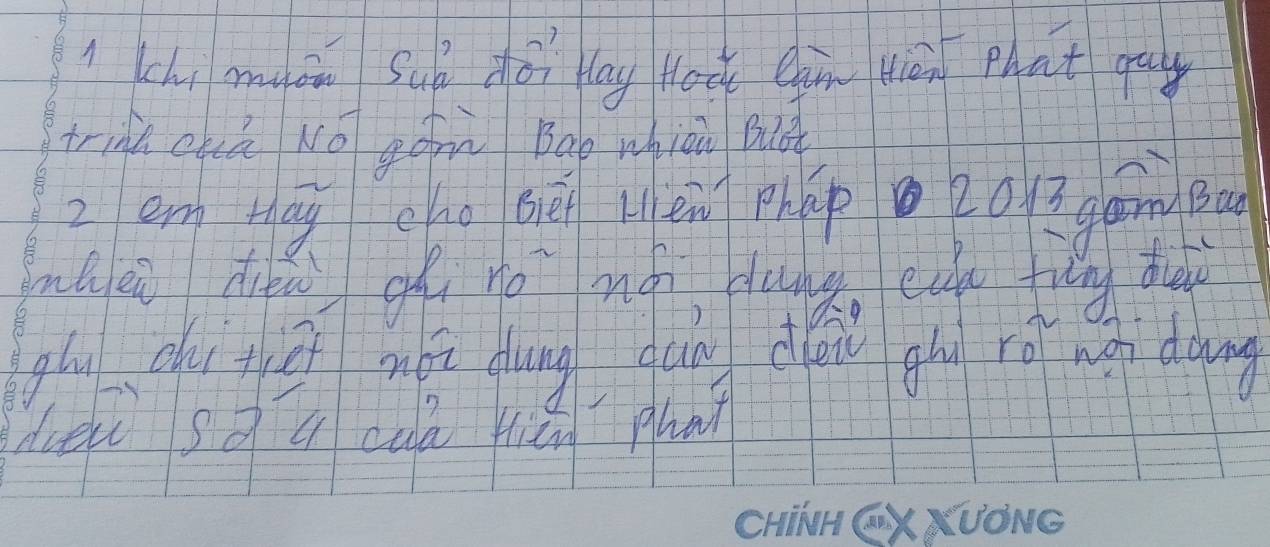 1 Khi muốn Sửa đổi Hay Hoặc làm Hiến Phát quy
trình của Nó gồm Bao nhiêu Bước
2 em Hãy cho Biết Hiến Pháp 2013 gồm Bao
nhiêu điều ghi rõ nội dung của từng điều
ghi chi tiết nội dung của điều 9 ghi rõ nội dung
điều số 4 của Hiến Phát
CHÍNH XƯƠNG